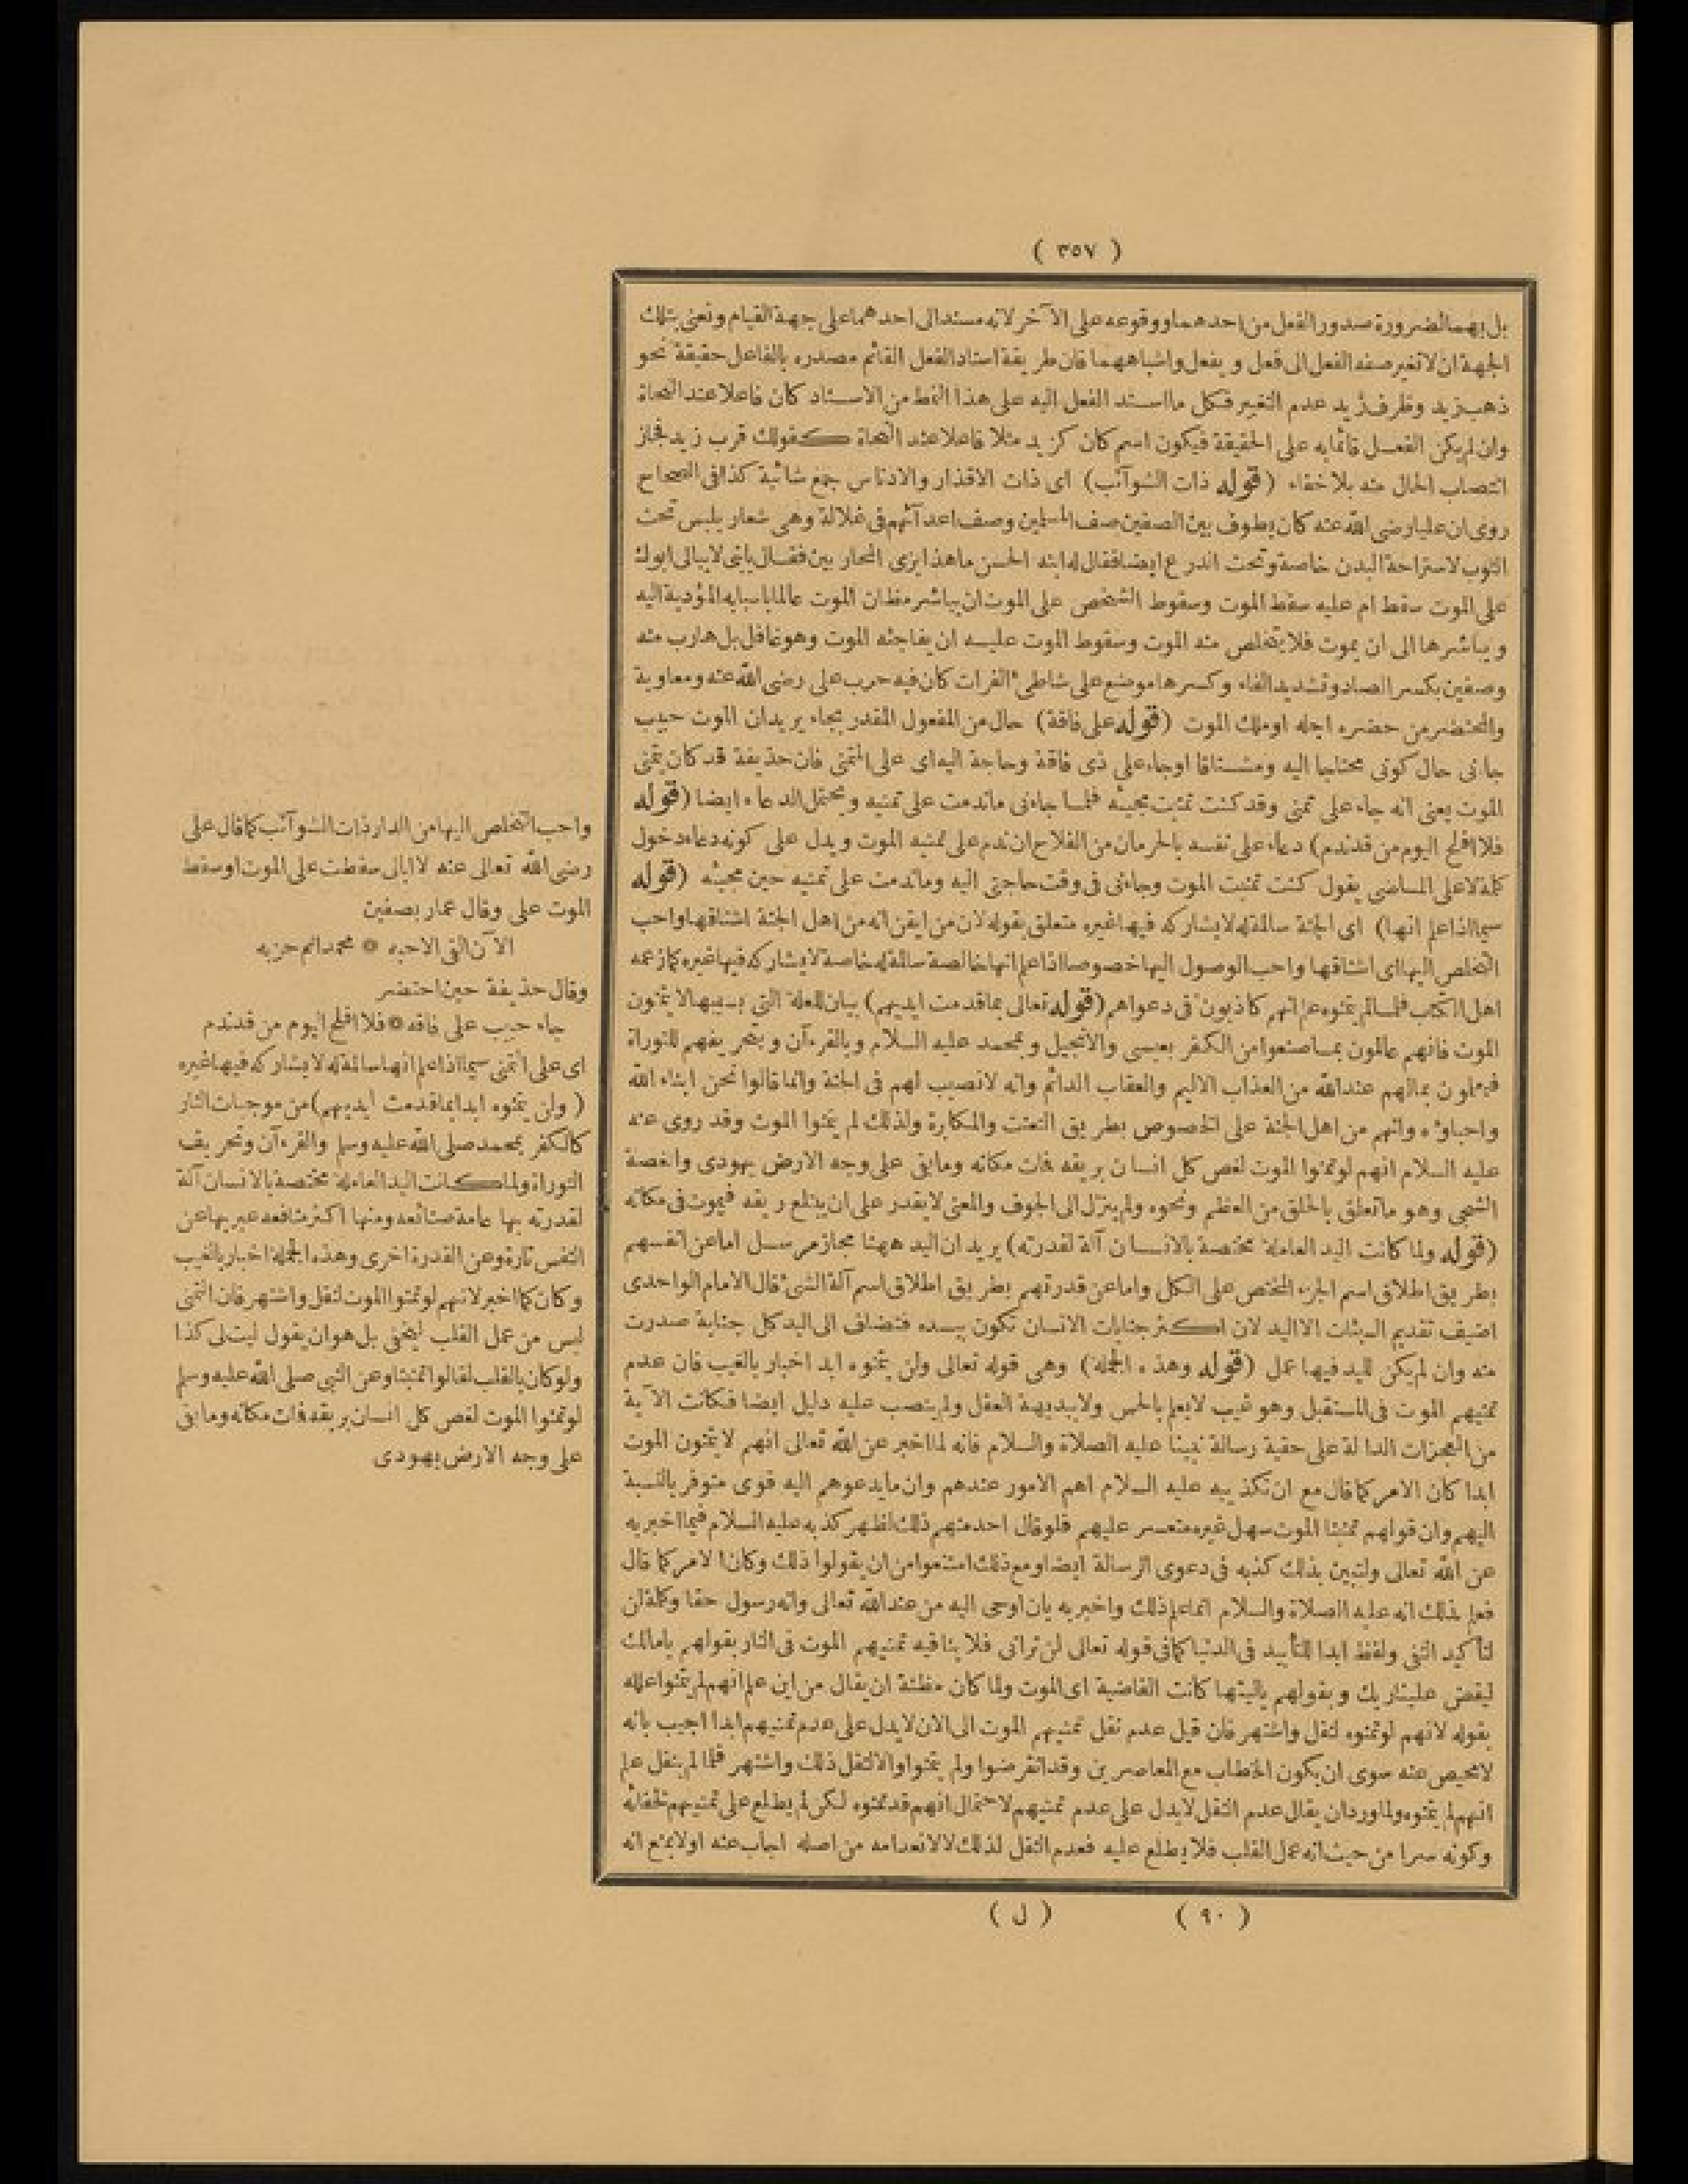 ( ٣٥٧ )
بل يهما لضرورة صدور الفعل من احدهما ووقوعه على الآخر لانه مسند الى احدهما على جهة القيام ونعنى بتلك
الجهة ان لا تغير صفه الفعل الى فعل ويفعل واشباههما فان طريقة اسناد الفعل القائم مصدره بالفاعل حقيقة نحو
ذهب زيد وظرف زيد عدم التغيير فكل ما اسند الفعل اليه على هذا النمط من الاسناد كان فاعلا عند النحاة
وان لم يكن الفعل قائما به على الحقيقة فيكون اسم كان كزيد مثلا فاعلا عند النحاة كقولك قرب زيد فجاز
انتصاب الحال منه بلا خفاء (قوله ذات الشوآئب) اى ذات الاقذار والادناس جمع شائبة كذا فى الصحاح
روى ان عليا رضى الله عنه كان يطوف بين الصفين صف المسلمين وصف اعدآئهم فى غلالة وهى شعار يلبس تحت
الثوب لاستراحة البدن خاصة وتحت الدرع ايضا فقال له ابنه الحسن ما هذا بزى المحاربين فقال يا بنى لا يبالى ابوك
على الموت سقط ام عليه سقط الموت وسقوط الشخص على الموت ان يباشر مظان الموت عالما باسبابه المؤدية اليه
ويباشرها الى ان يموت فلا يتخلص منه الموت وسقوط الموت عليه ان يفاجئه الموت وهو غافل بل هارب منه
وصفين بكسر الصاد وتشديد الفاء وكسرها موضع على شاطئ الفرات كان فيه حرب على رضى الله عنه ومعاوية
والمحتضر من حضره اجله او ملك الموت (قوله على فاقة) حال من المفعول المقدر بجاء يريد ان الموت حبيب
جاءنى حال كونى محتاجا اليه ومشتاقا او جاء على ذى فاقة وحاجة اليه اى على التمنى فان حذيفة قد كان يتمنى
الموت يعنى انه جاء على تمنى وقد كنت تمنيت مجيئه فلما جاءنى ما ندمت على تمنيه ويحتمل الدعاء ايضا (قوله
فلا افلح اليوم من قد ندم) دعاء على نفسه بالحرمان من الفلاح ان ندم على تمنيه الموت ويدل على كونه دعاء دخول
كلمة لا على الماضى يقول كنت تمنيت الموت وجاءنى فى وقت حاجتى اليه وما ندمت على تمنيه حين مجيئه (قوله
سيما اذا علم انها) اى الجنة سالمة له لا يشاركه فيها غيره متعلق بقوله لان من ايقن انه من اهل الجنة اشتاقها واحب
التخلص اليها اى اشتاقها واحب الوصول اليها خصوصا اذا علم انها خالصة سالمة له خاصة لا يشاركه فيها غيره كما زعمه
اهل الكتاب فلما لم يتمنوه علم انهم كاذبون فى دعواهم (قوله تعالى بما قدمت ايديهم) بيان للعلة التى بسببها لا يتمنون
الموت فانهم عالمون بما صنعوا من الكفر بعيسى والانجيل وبمحمد عليه السلام وبالقرءآن وبتحريفهم للتوراة
فيعلمون بما لهم عند الله من العذاب الاليم والعقاب الدائم وانه لا نصيب لهم فى الجنة وانما قالوا نحن ابناء الله
واحباؤه وانهم من اهل الجنة على الخصوص بطريق التعنت والمكابرة ولذلك لم يتمنوا الموت وقد روى عنه
عليه السلام انهم لو تمنوا الموت لغص كل انسان بريقه فات مكانه وما بقى على وجه الارض يهودى والغصة
الشجى وهو ما تعلق بالحلق من العظم ونحوه ولم ينزل الى الجوف والمعنى لا يقدر على ان يبتلع ريقه فيموت فى مكانه
(قوله ولما كانت اليد العاملة مختصة بالانسان آلة لقدرته) يريد ان اليد ههنا مجاز مرسل اما عن انفسهم
بطريق اطلاق اسم الجزء المختص على الكل واما عن قدرتهم بطريق اطلاق اسم آلة الشئ قال الامام الواحدى
اضيف تقديم السيئات الا اليد لان اكثر جنايات الانسان تكون بيده فتضاف الى اليد كل جناية صدرت
منه وان لم يكن لليد فيها عمل (قوله وهذه الجملة) وهى قوله تعالى ولن يتمنوه ابد اخبار بالغيب فان عدم
تمنيهم الموت فى المستقبل وهو غيب لا يعلم بالحس ولا ببديهة العقل ولم ينتصب عليه دليل ايضا فكانت الآية
من المعجزات الدالة على حقية رسالة نبينا عليه الصلاة والسلام فانه لما اخبر عن الله تعالى انهم لا يتمنون الموت
ابدا كان الامر كما قال مع ان تكذيبه عليه السلام اهم الامور عندهم وان ما يدعوهم اليه قوى متوفر بالنسبة
اليهم وان قولهم تمنينا الموت سهل غير متعسر عليهم فلو قال احد منهم ذلك لظهر كذبه عليه السلام فيما اخبر به
عن الله تعالى ولتبين بذلك كذبه فى دعوى الرسالة ايضا ومع ذلك امتنعوا من ان يقولوا ذلك وكان الامر كما قال
فعلم بذلك انه عليه الصلاة والسلام انما علم ذلك واخبر به بان اوحى اليه من عند الله تعالى وانه رسول حقا وكلمة لن
لتأكيد النفى ولفظ ابدا للتأبيد فى الدنيا كما فى قوله تعالى لن ترانى فلا ينافيه تمنيهم الموت فى النار بقولهم يا مالك
ليقض علينا ربك وبقولهم يا ليتها كانت القاضية اى الموت ولما كان مظنة ان يقال من اين علم انهم لم يتمنوا علله
بقوله لانهم لو تمنوه لنقل واشتهر فان قيل عدم نقل تمنيهم الموت الى الان لا يدل على عدم تمنيهم ابدا اجيب بانه
لا محيص عنه سوى ان يكون الخطاب مع المعاصرين وقد انقرضوا ولم يتمنوا والا لنقل ذلك واشتهر فلما لم ينقل علم
انهم لم يتمنوه ولما ورد ان يقال عدم النقل لا يدل على عدم تمنيهم لاحتمال انهم قد تمنوه لكن لم يطلع على تمنيهم لخفائه
وكونه سرا من حيث انه عمل القلب فلا يطلع عليه فعدم النقل لذلك لا لانعدامه من اصله اجاب عنه اولا بمنع انه
( ٩٠ ) ( ل )
واحب التخلص اليها من الدار ذات الشوآئب كما قال على
رضى الله تعالى عنه لا ابالى سقطت على الموت او سقط
الموت على وقال عمار بصفين
الآن القى الاحبه * محمدا ثم حزبه
وقال حذيفة حين احتضر
جاء حبيب على فاقه * فلا افلح اليوم من قد ندم
اى على التمنى سيما اذا علم انها سالمة له لا يشاركه فيها غيره
( ولن يتمنوه ابدا بما قدمت ايديهم) من موجبات النار
كالكفر بمحمد صلى الله عليه وسلم والقرءآن وتحريف
التوراة ولما كانت اليد العاملة مختصة بالانسان آلة
لقدرته بها عامة صنائعه ومنها اكثر منافعه عبر بها عن
النفس تارة وعن القدرة اخرى وهذه الجملة اخبار بالغيب
وكان كما اخبر لانهم لو تمنوا الموت لنقل واشتهر فان التمنى
ليس من عمل القلب ليخفى بل هو ان يقول ليت لى كذا
ولو كان بالقلب لقالوا تمنينا وعن النبى صلى الله عليه وسلم
لو تمنوا الموت لغص كل انسان بريقه فات مكانه وما بقى
على وجه الارض يهودى